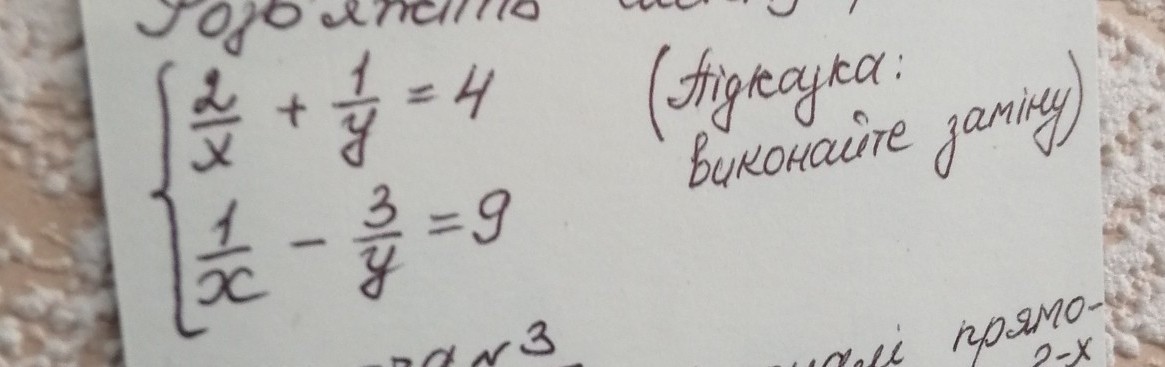 Розв'яжіть
{ 2/x + 1/y = 4 (Підказка:
виконайте заміну)
1/x - 3/y = 9
прямо-
2-x